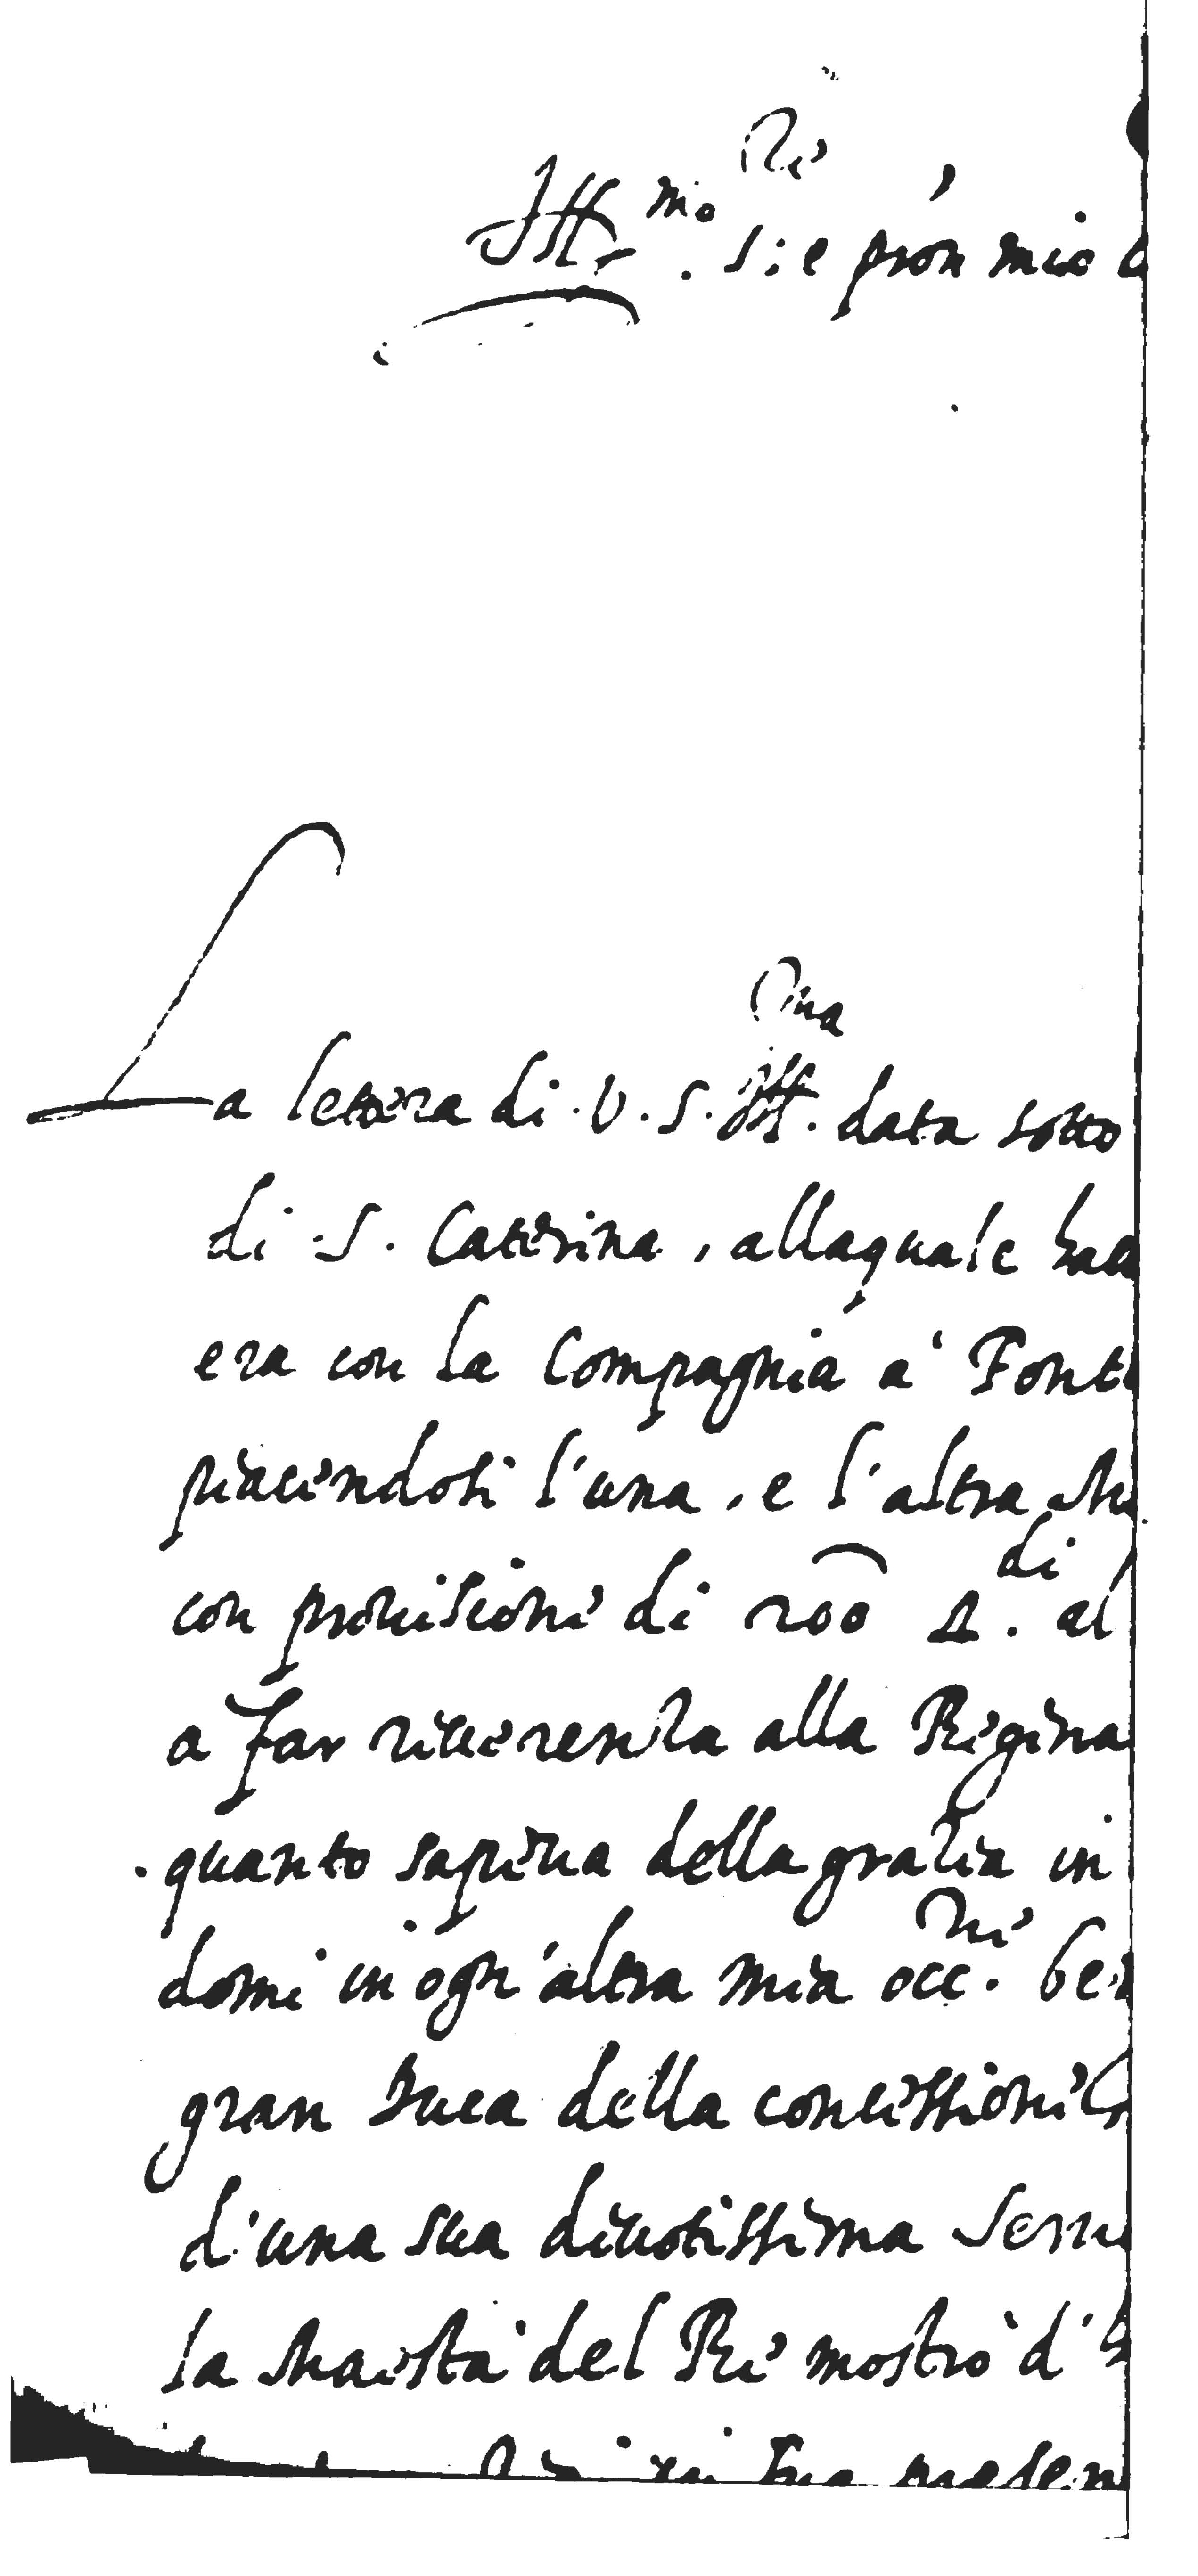 Ill.mo S.re e pron mio
La lettera di V. S. Ill.ma data sotto
di S. Caterina, allaquale
era con la Compagnia à
piacendosi l'una, e l'altra
con provisione di 200 al
a far riverenza alla Regina
quanto sapeva della grazia in
domi in ogn'altra mia occ.ne
gran Duca della concessione
d'una sua divotissima
la Maestà del Re mostrò d'